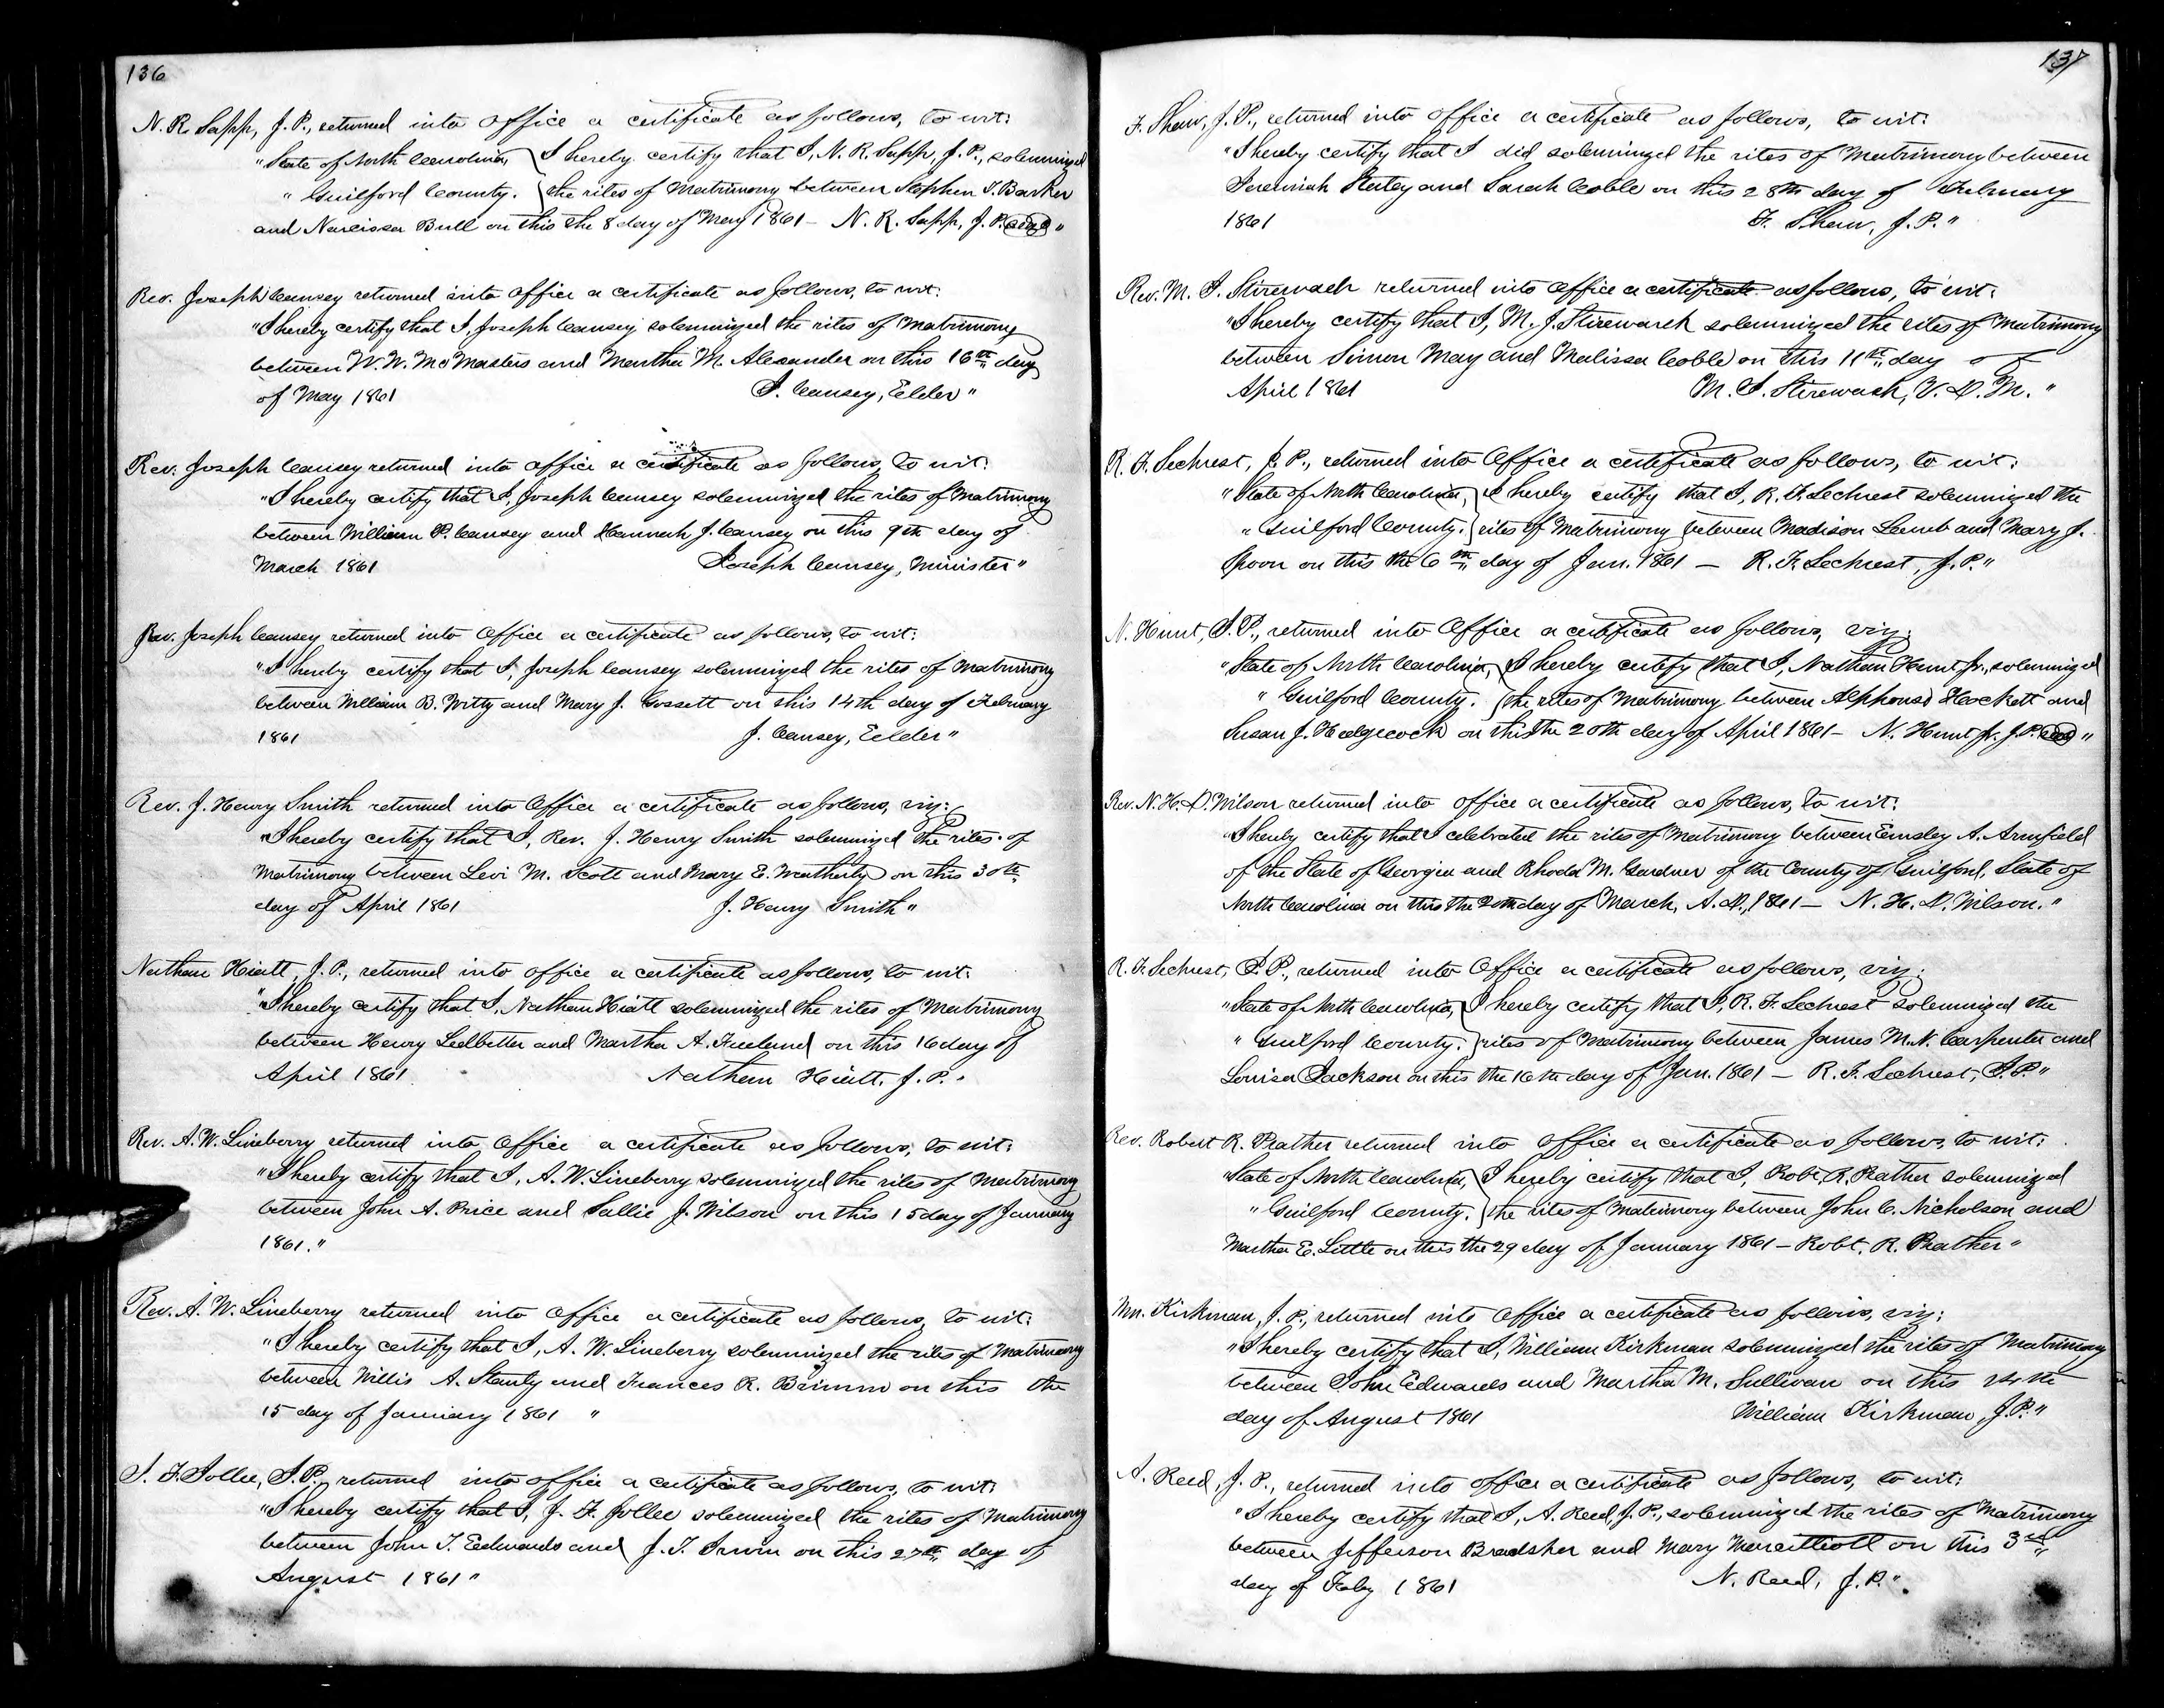 136
N. R. Sapp, J. P., returned into office a certificate as follows, to wit:
"State of North Carolina, } I hereby certify that I, N. R. Sapp, J. P., solemnized
" Guilford County. } the rites of Matrimony between Stephen T. Barker
and Narcissa Bull on this the 8 day of May 1861 – N. R. Sapp, J. P. "
Rev. Joseph Causey returned into office a certificate as follows, to wit:
"I hereby certify that I, Joseph Causey solemnized the rites of Matrimony
between W. W. McMasters and Martha M. Alexander on this 16th day
of May 1861 J. Causey, Elder"
Rev. Joseph Causey returned into office a certificate as follows, to wit:
"I hereby certify that I, Joseph Causey solemnized the rites of Matrimony
between William P. Causey and Hannah J. Causey on this 9th day of
March 1861 Joseph Causey, Minister"
Rev. Joseph Causey returned into Office a certificate as follows, to wit:
"I hereby certify that I, Joseph Causey solemnized the rites of Matrimony
between William B. Witty and Mary J. Gossett on this 14th day of February
1861 J. Causey, Elder"
Rev. J. Henry Smith returned into Office a certificate as follows, viz:
"I hereby certify that I, Rev. J. Henry Smith solemnized the rites of
Matrimony between Levi M. Scott and Mary E. Weatherly on this 30th
day of April 1861 J. Henry Smith"
Nathan Hiatt, J. P., returned into office a certificate as follows, to wit:
"I hereby certify that I, Nathan Hiatt solemnized the rites of Matrimony
between Henry Ledbetter and Martha A. Freeland on this 16 day of
April 1861 Nathan Hiatt, J. P."
Rev. A. W. Lineberry returned into Office a certificate as follows, to wit:
"I hereby certify that I, A. W. Lineberry solemnized the rites of Matrimony
between John A. Price and Sallie J. Wilson on this 15 day of January
1861."
Rev. A. W. Lineberry returned into Office a certificate as follows, to wit:
"I hereby certify that I, A. W. Lineberry solemnized the rites of Matrimony
between Willis A. Stanly and Frances R. Brimm on this the
15 day of January 1861 "
J. F. Jollee, J. P., returned into office a certificate as follows, to wit:
"I hereby certify that I, J. F. Jollee solemnized the rites of Matrimony
between John T. Edwards and J. T. Irwin on this 27th day of
August 1861"
137
F. Shaw, J. P., returned into office a certificate as follows, to wit:
"I hereby certify that I did solemnized the rites of Matrimony between
Jeremiah Staley and Sarah Coble on this 28th day of February
1861 F. Shaw, J. P."
Rev. M. J. Stirewach returned into Office a certificate as follows, to wit:
"I hereby certify that I, M. J. Stirewach solemnized the rites of Matrimony
between Simon May and Malissa Coble on this 11th day of
April 1861 M. J. Stirewach, V. D. M. "
R. F. Sechrest, J. P., returned into Office a certificate as follows, to wit:
"State of North Carolina, } I hereby certify that I, R. F. Sechrest solemnized the
" Guilford County. } rites of Matrimony between Madison Lamb and Mary J.
Spoon on this the 6th day of Jan. 1861 – R. F. Sechrest, J. P."
N. Hunt, J. P., returned into Office a certificate as follows, viz:
"State of North Carolina, } I hereby certify that I, Nathan Hunt Jr., solemnized
" Guilford County. } the rites of Matrimony between Alphonso Hockett and
Susan J. Hedgecock on this the 20th day of April 1861 – N. Hunt Jr. J. P. "
Rev. N. H. D. Wilson returned into office a certificate as follows, to wit:
"I hereby certify that I celebrated the rites of Matrimony between Emsley A. Armfield
of the State of Georgia and Rhoda M. Gardner of the County of Guilford, State of
North Carolina on this the 20th day of March, A. D., 1861 – N. H. D. Wilson."
R. F. Sechrest, J. P., returned into Office a certificate as follows, viz:
"State of North Carolina, } I hereby certify that I, R. F. Sechrest solemnized the
" Guilford County. } rites of Matrimony between James M. N. Carpenter and
Louisa Jackson on this the 16th day of Jan. 1861 – R. F. Sechrest, J. P."
Rev. Robert R. Prather returned into office a certificate as follows, to wit:
"State of North Carolina, } I hereby certify that I, Robt. R. Prather solemnized
" Guilford County. } the rites of Matrimony between John C. Nicholson and
Martha E. Little on this the 29 day of January 1861 – Robt. R. Prather"
Wm. Kirkman, J. P., returned into Office a certificate as follows, viz:
"I hereby certify that I, William Kirkman solemnized the rites of Matrimony
between John Edwards and Martha M. Sullivan on this 14th
day of August 1861 William Kirkman, J. P."
A. Reed, J. P., returned into office a certificate as follows, to wit:
"I hereby certify that I, A. Reed, J. P., solemnized the rites of Matrimony
between Jefferson Bradsher and Mary on this 3rd
day of Feby 1861 N. Reed, J. P."